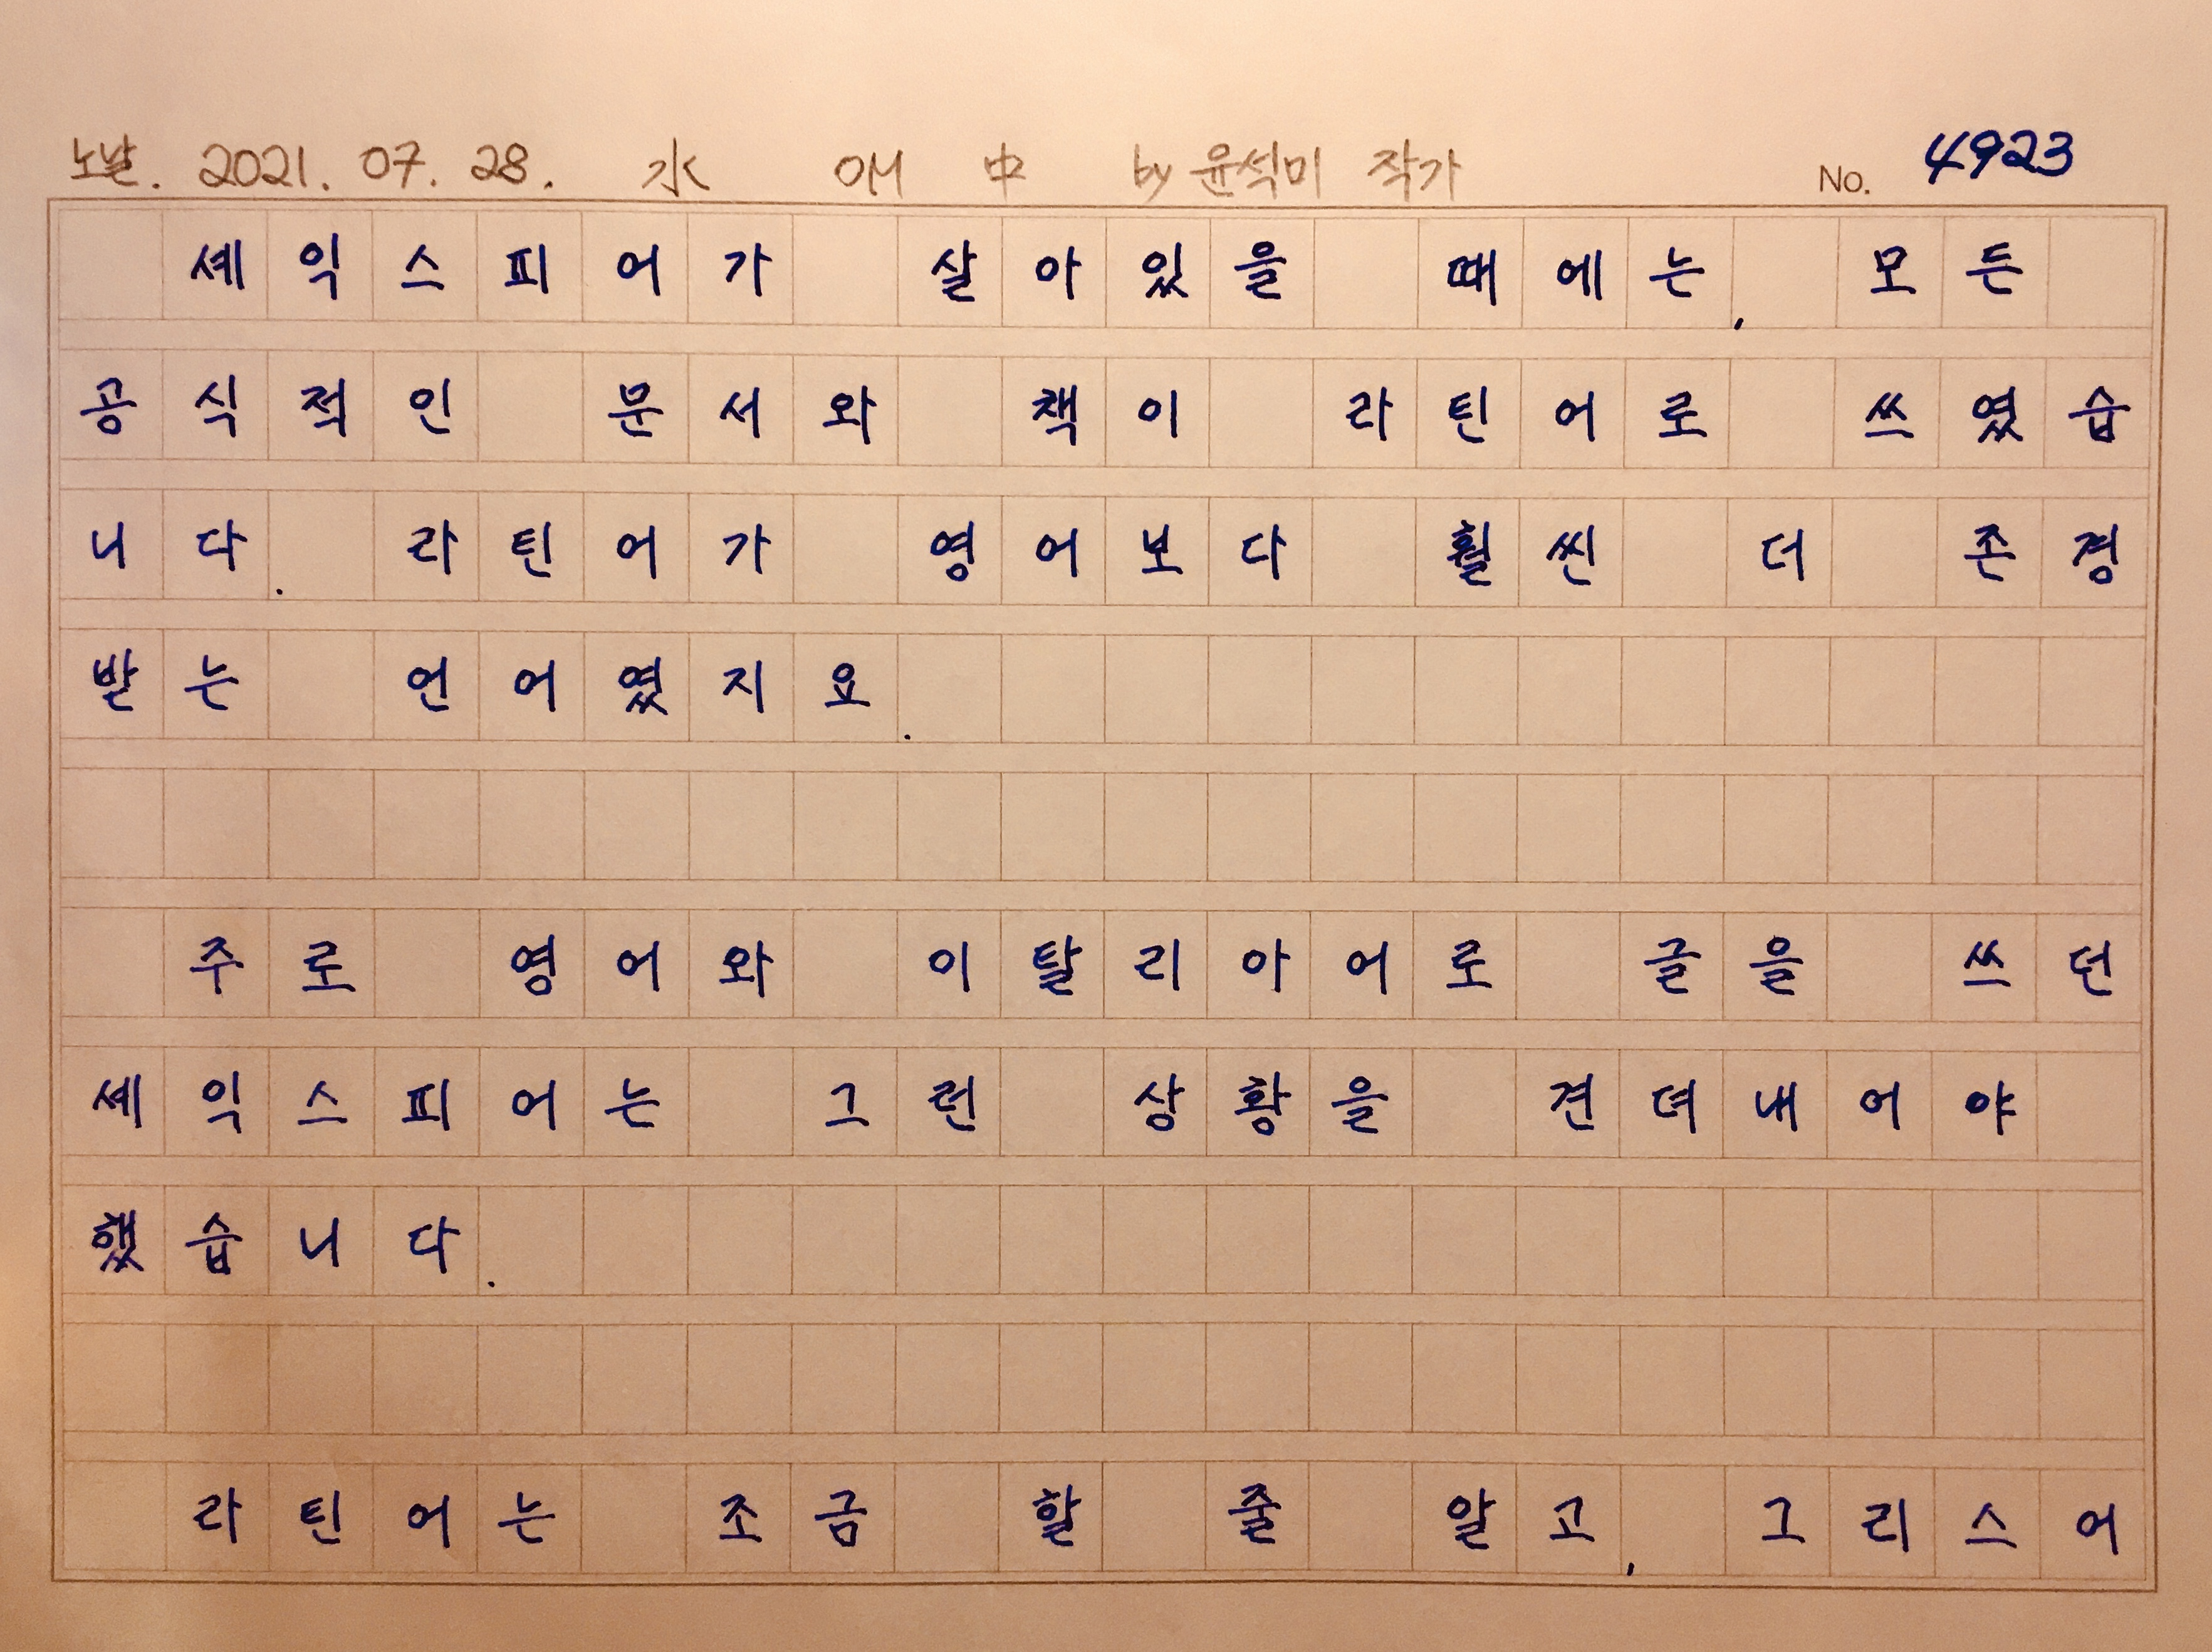 노날. 2021. 07. 28. 水 애 中 by 윤석미 작가 No. 4923
셰익스피어가 살아있을 때에는, 모든
공식적인 문서와 책이 라틴어로 쓰였습
니다. 라틴어가 영어보다 훨씬 더 존경
받는 언어였지요.
주로 영어와 이탈리아어로 글을 쓰던
셰익스피어는 그런 상황을 견뎌내어야
했습니다.
라틴어는 조금 할 줄 알고, 그리스어